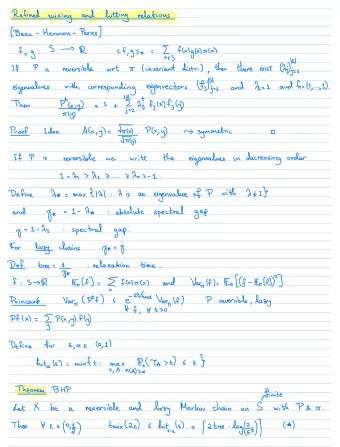 Refined mixing and hitting relations
[Basu - Hermon - Peres]
f, g : S → ℝ <f,g>_π = Σ_{x∈S} f(x)g(x)π(x)
If P is reversible wrt π (invariant distr.), then there exist (λ_j)_{j=1}^{|S|}
eigenvalues with corresponding eigenvectors (f_j)_{j=1}^{|S|} and λ_1=1 and f_1=(1,...,1).
Then P^t(x,y)/π(y) = 1 + Σ_{j=2}^{|S|} λ_j^t f_j(x) f_j(y)
Proof Idea A(x,y) = √π(x)/√π(y) P(x,y) → symmetric □
If P is reversible we write the eigenvalues in decreasing order
1 = λ_1 > λ_2 ≥ ... ≥ λ_n ≥ -1.
Define λ_* = max{|λ| : λ is an eigenvalue of P with λ≠1}
and γ_* = 1-λ_* : absolute spectral gap
γ = 1-λ_2 : spectral gap.
For lazy chains γ_* = γ.
Def t_rel = 1/γ_* : relaxation time.
f : S→ℝ E_π[f] = Σ_x f(x)π(x) and Var_π(f) = E_π[(f - E_π[f])^2]
Poincaré Var_π(P^t f) ≤ e^{-2t/t_rel} Var_π(f) P reversible, lazy
∀ f, ∀ t≥0
Pf(x) = Σ_y P(x,y) f(y)
Define for ε, α ∈ (0,1)
hit_α(ε) = min{t : max_{x, A : π(A)≥α} P_x(τ_A > t) ≤ ε}
Theorem BHP
Let X be a reversible and lazy Markov chain on S finite with P & π.